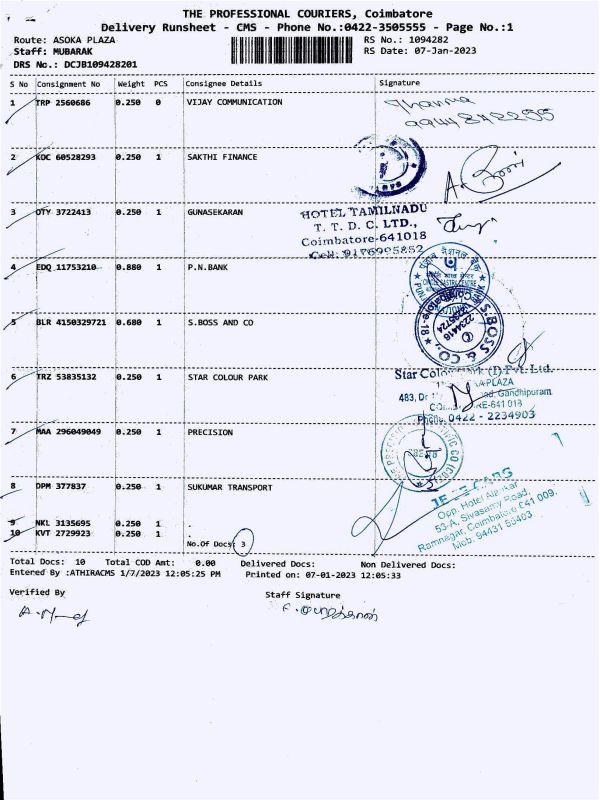 THE PROFESSIONAL COURIERS, Coimbatore
Delivery Runsheet - CMS - Phone No.:0422-3505555 - Page No.:1
Route: ASOKA PLAZA RS No.: 1094282
Staff: MUBARAK RS Date: 07-Jan-2023
DRS No.: DCJB109428201
S No Consignment No Weight PCS Consignee Details Signature
1 TRP 2560686 0.250 0 VIJAY COMMUNICATION
2 KOC 60528293 0.250 1 SAKTHI FINANCE
3 OTY 3722413 0.250 1 GUNASEKARAN
HOTEL TAMILNADU
T. T. D. C. LTD.,
Coimbatore-641018
Cell: 9176995852
4 EDQ 11753210 0.880 1 P.N.BANK
5 BLR 4150329721 0.680 1 S.BOSS AND CO
S.BOSS & CO.
Coimbatore-18
2234416
6 TRZ 53835132 0.250 1 STAR COLOUR PARK
Star Colour Park (I) Pvt. Ltd.
PLAZA
483, Gandhipuram
641 018
Phone: 0422 - 2234903
7 MAA 296049049 0.250 1 PRECISION
8 DPM 377837 0.250 1 SUKUMAR TRANSPORT
Opp. Hotel Alankar
53-A, Sivasamy Road,
Ramnagar, Coimbatore 641 009.
Mob: 94431 50403
9 NKL 3135695 0.250 1 .
10 KVT 2729923 0.250 1
No.Of Docs: 3
Total Docs: 10 Total COD Amt: 0.00 Delivered Docs: Non Delivered Docs:
Entered By :ATHIRACMS 1/7/2023 12:05:25 PM Printed on: 07-01-2023 12:05:33
Verified By Staff Signature